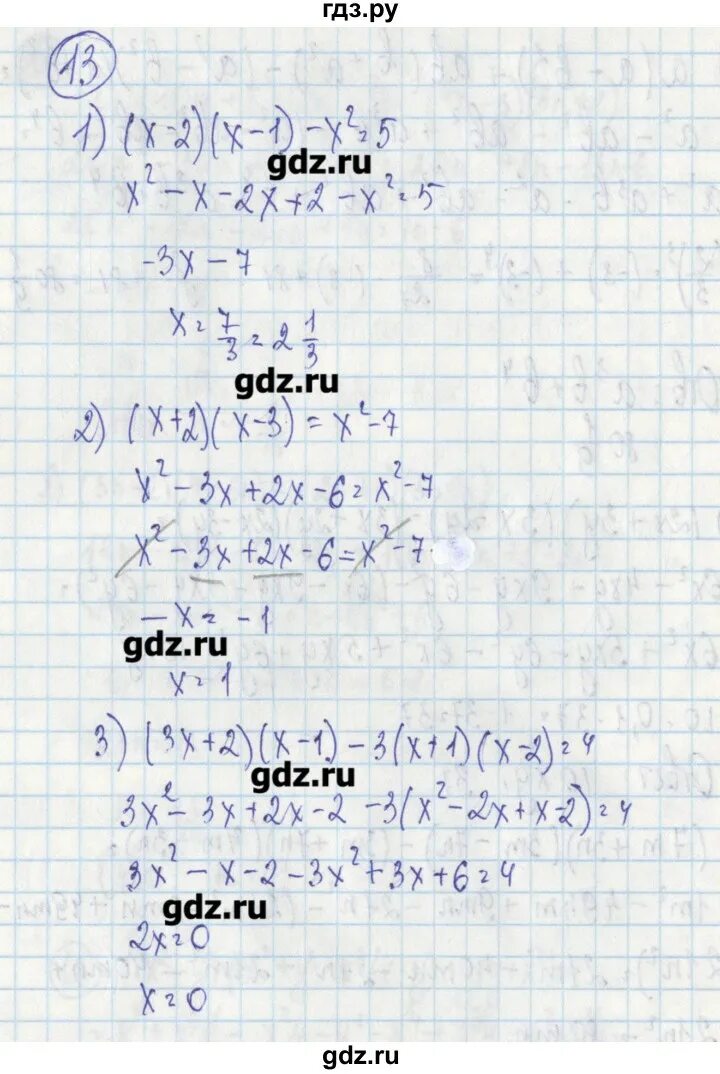 гдз.ру
13
1) (x-2)(x-1)-x²=5
gdz.ru
x²-x-2x+2-x²=5
-3x-7
x=7/3=2 1/3
gdz.ru
2) (x+2)(x-3)=x²-7
x²-3x+2x-6=x²-7
x²-3x+2x-6=x²-7
-x=-1
gdz.ru
x=1
3) (3x+2)(x-1)-3(x+1)(x-2)=4
gdz.ru
3x²-3x+2x-2-3(x²-2x+x-2)=4
3x²-x-2-3x²+3x+6=4
gdz.ru
2x=0
x=0
gdz.ru